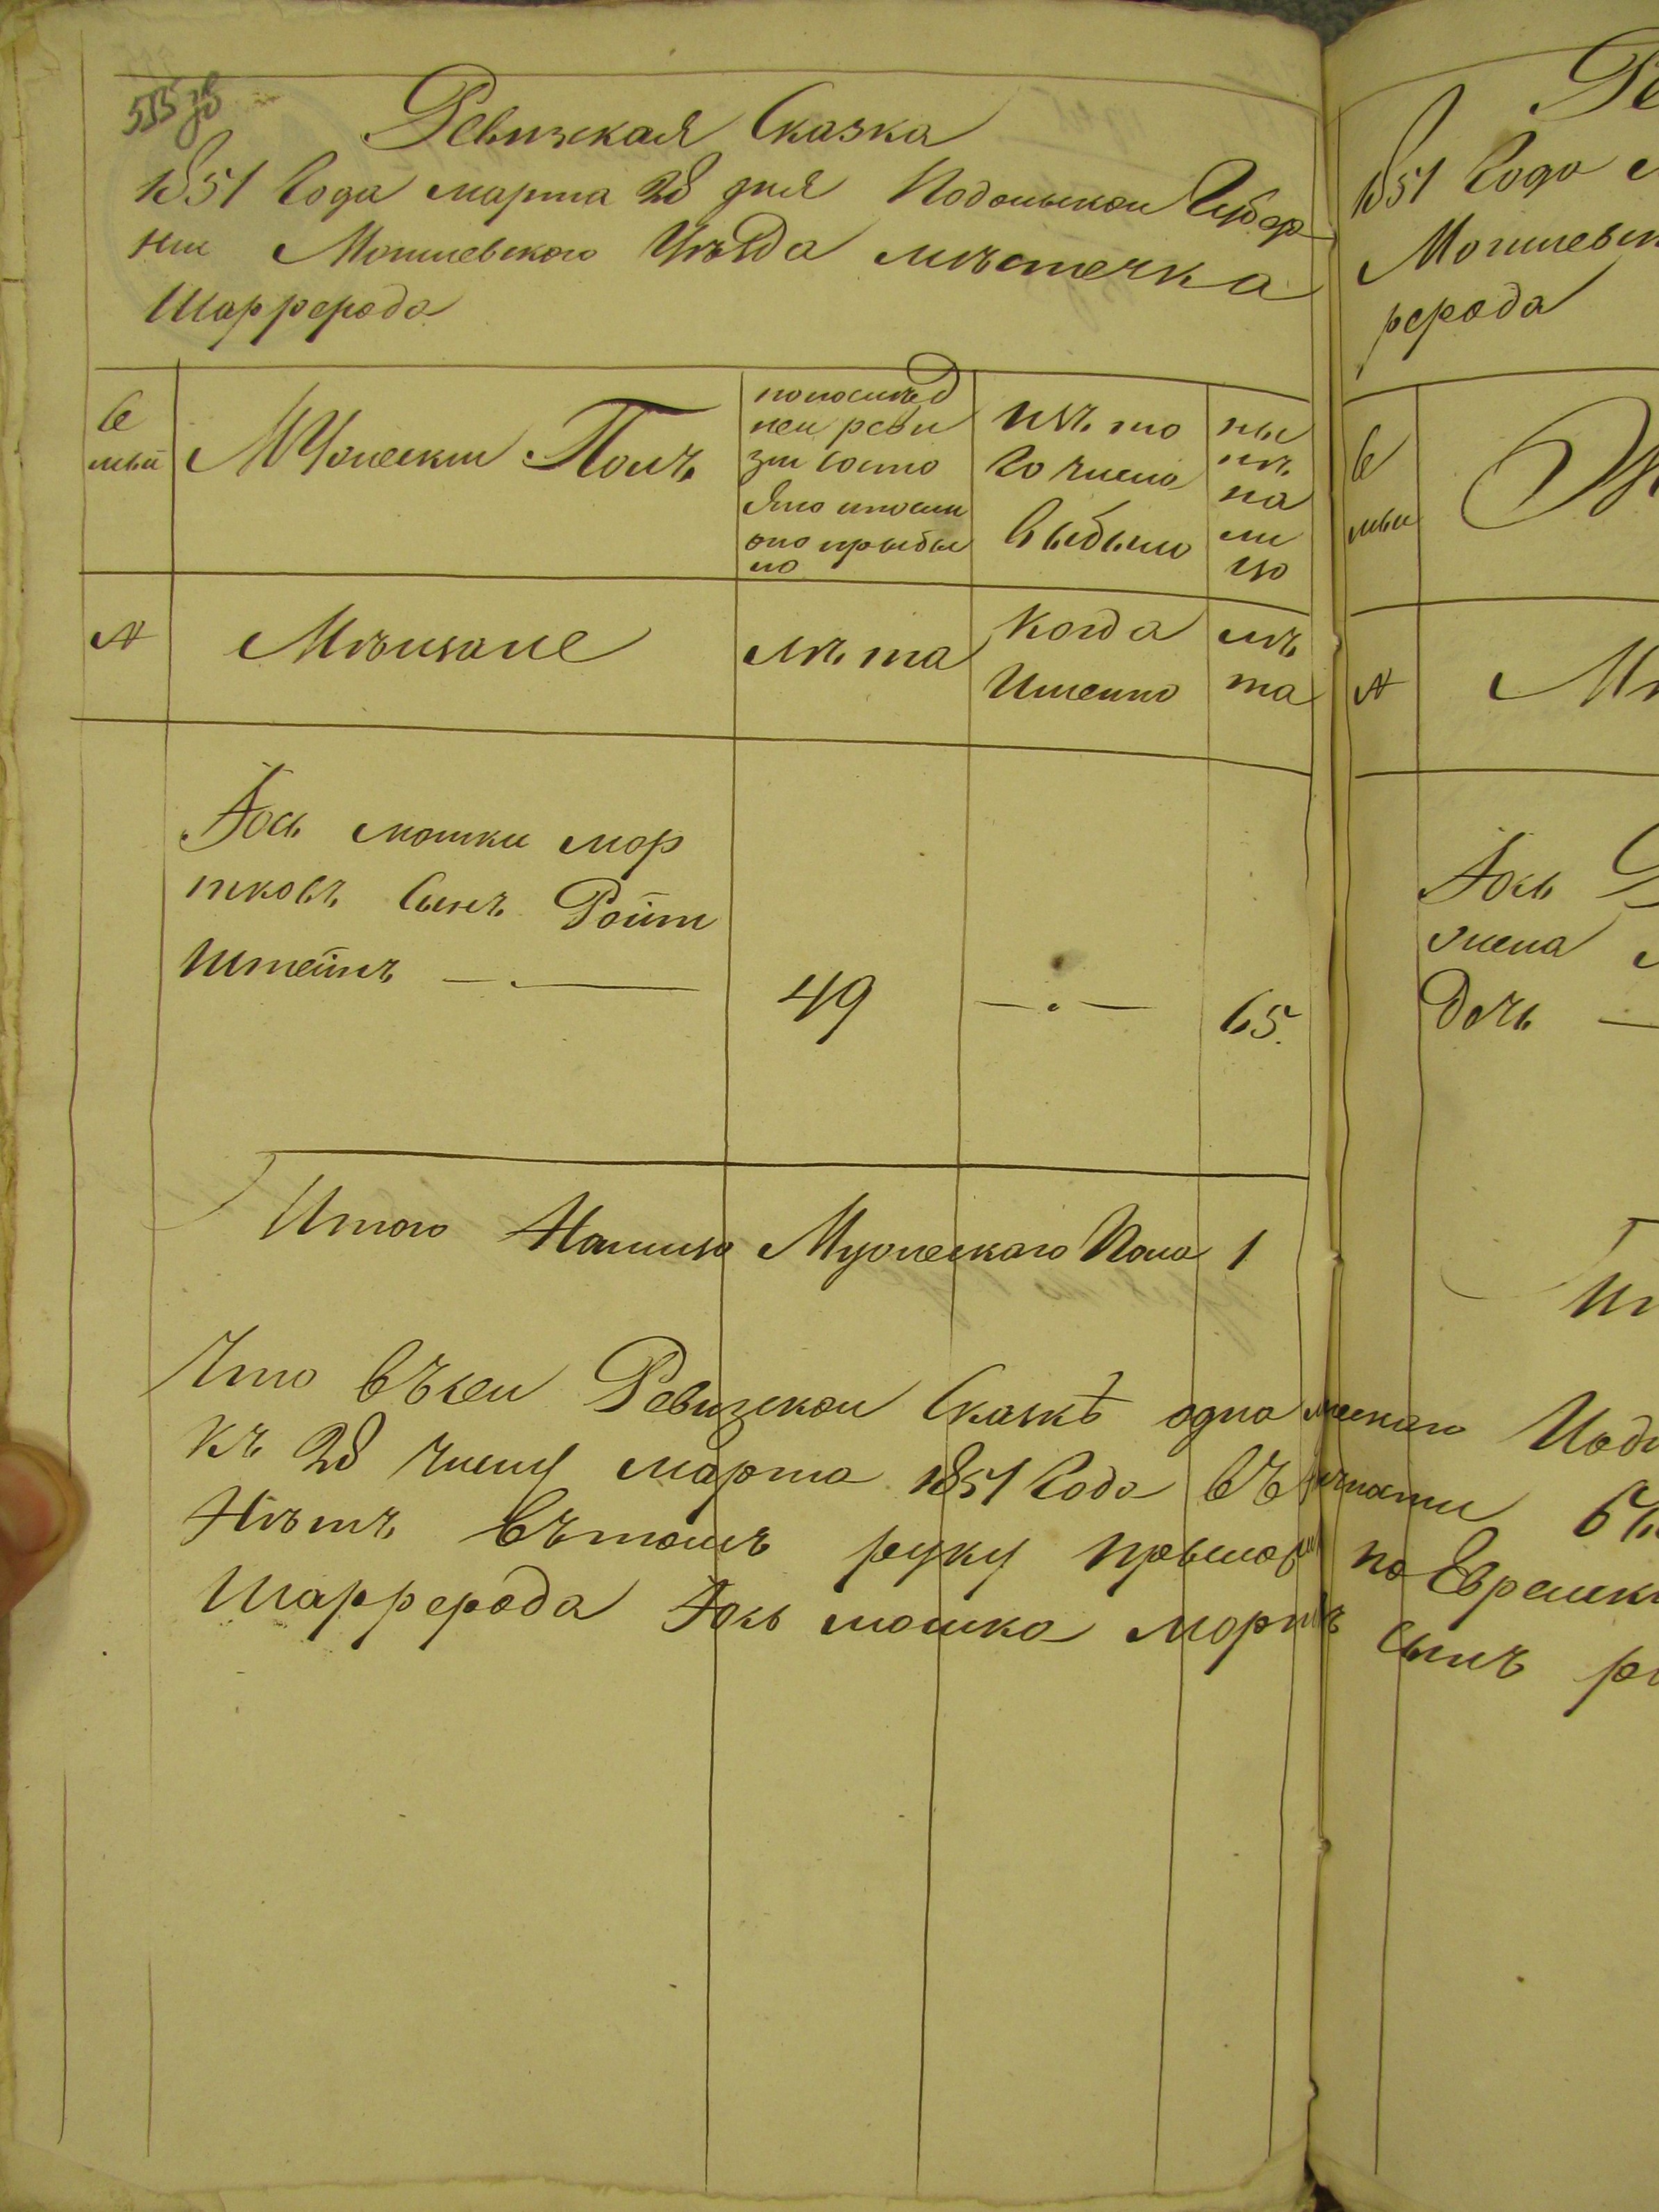 555 зв
Ревизская Сказка
1851 Года марта 28 дня Подольской Губер
нии Могилевского Уѣзда мѣстечка
Шаргерода
Се
мьи
Мужеский Полъ
по послѣд
ней реви
зіи состо
яло и после
оно прыбы
ло
Изъ то
го числа
выбыло
ны
нѣ
на
ли
цо
№
Мѣщане
лѣта
Когда
Именно
лѣ
та
Іось мошки мор
тковъ Сынъ Ройт
Штейнъ
49
65.
Итого Налицо Мужескаго Пола 1
Что въ сей Ревизской Сказкѣ одна
къ 28 числу марта 1851 Года въ
Нѣтъ въ томъ руку
Шаргерода Іось мошка
по Еврейски
сынъ
Ре
1851 Года
Могилевск
герода
Се
мьи
№
Іось
жена
дочь